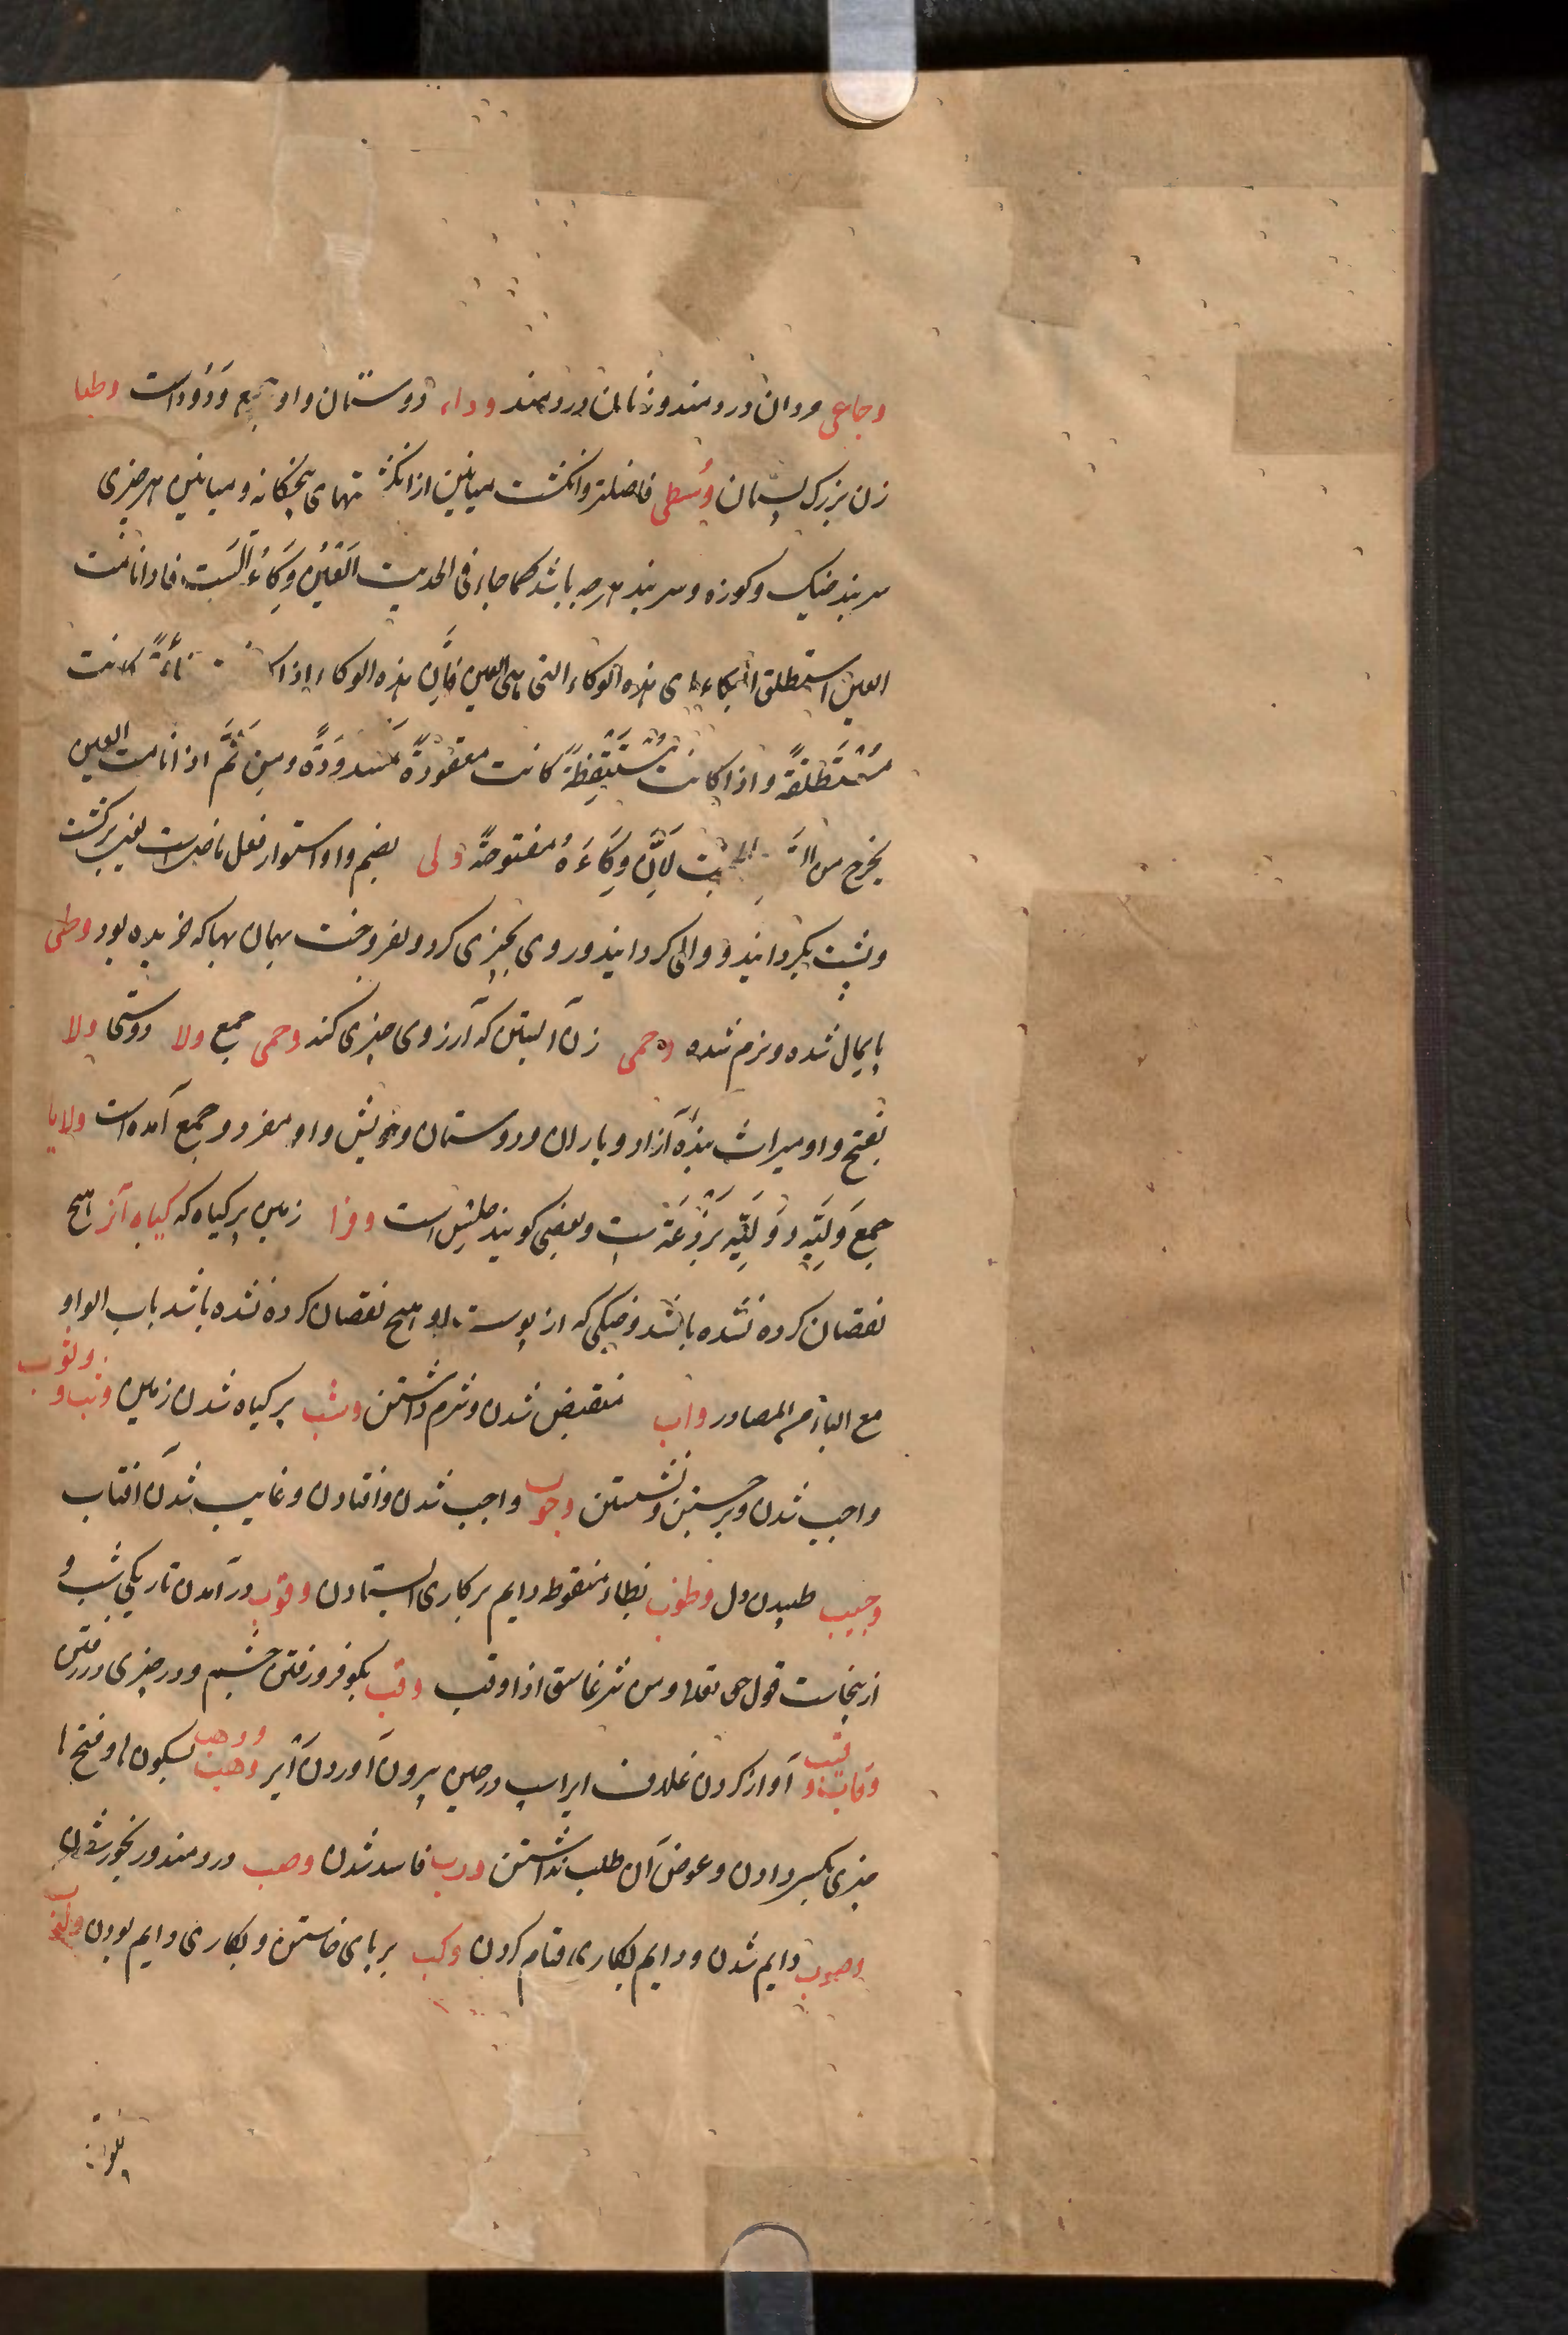 وجاعی مردان دردمند و زنان دردمند وداء دوستان و او جمع وَدُوداست وطبا
زن بزرک پستان وُسطی فاضلتر و انکشت میانین از انکشتهای پنجکانه و میانین هر چیزی
سربند خیک و کوزه و سربند هرچه باشد کما جاء فی الحدیث اَلعَیْنُ وِکَاءُ السَّتِه فاذا نامت
العین استطلق الوکاء ای هذه الوکاء التی هی العین فاِنّ هذه الوکاء اذا کانت نائمةً کانت
مُسْتَطلَقَةً و اذا کانت مُسْتَیْقِظَةً کانت معقودةً مَسدودَةً ومِن ثَمَّ اذا نامت العین
یخرج من لِاَنَّ وِکَاءَهُ مفتوحةً ولی بضم واو استوار فعل ماضیست یعنی برکشت
و پشت بکردانید و والی کردانید و روی بچیزی کرد و بفروخت بهمان بها که خریده بود وطی
پایمال شده و نرم شده وحمی زن آبستن که آرزوی چیزی کند وحمی جمع ولا دوستی ولا
بفتح واو میراث بنده آزاد و یاران و دوستان و خویش و او مفرد و جمع آمده است ولایا
جمع وَلِیَّه و وَلِیَّه بَرْذَعَه است و بعضی کویند جلیس است وفرا زمین پر کیاه که کیاه آنرا هیچ
نقصان کرده نشده باشد و خیکی که از پوست او هیچ نقصان کرده نشده باشد باب الواو
مع الباء من المصادر واب منقبض شدن و شرم داشتن وشب پر کیاه شدن زمین وثب و وثوب
واجب شدن و برجستن و نشستن وجوب واجب شدن و افتادن و غایب شدن آفتاب
وجیب طپیدن دل وظوب بظاء منقوطه دایم بر کاری ایستادن وقوب درآمدن تاریکی شب و
ازینجاست قول حق تعالی و من شر غاسق اذا وقب وقب بکو فرو رفتن چشم و در چیزی در رفتن
وقاب و وقیب آواز کردن غلاف ایر اسپ در حین بیرون آوردن ایر وهب و وهب بسکون ها و فتح ها
چیزی بکسی دادن و عوض آن طلب نداشتن ورب فاسد شدن وصب دردمند و رنجور شدن
وصوب دایم شدن و دایم بکاری قیام کردن وکب بر پای خاستن و بکاری دایم بودن